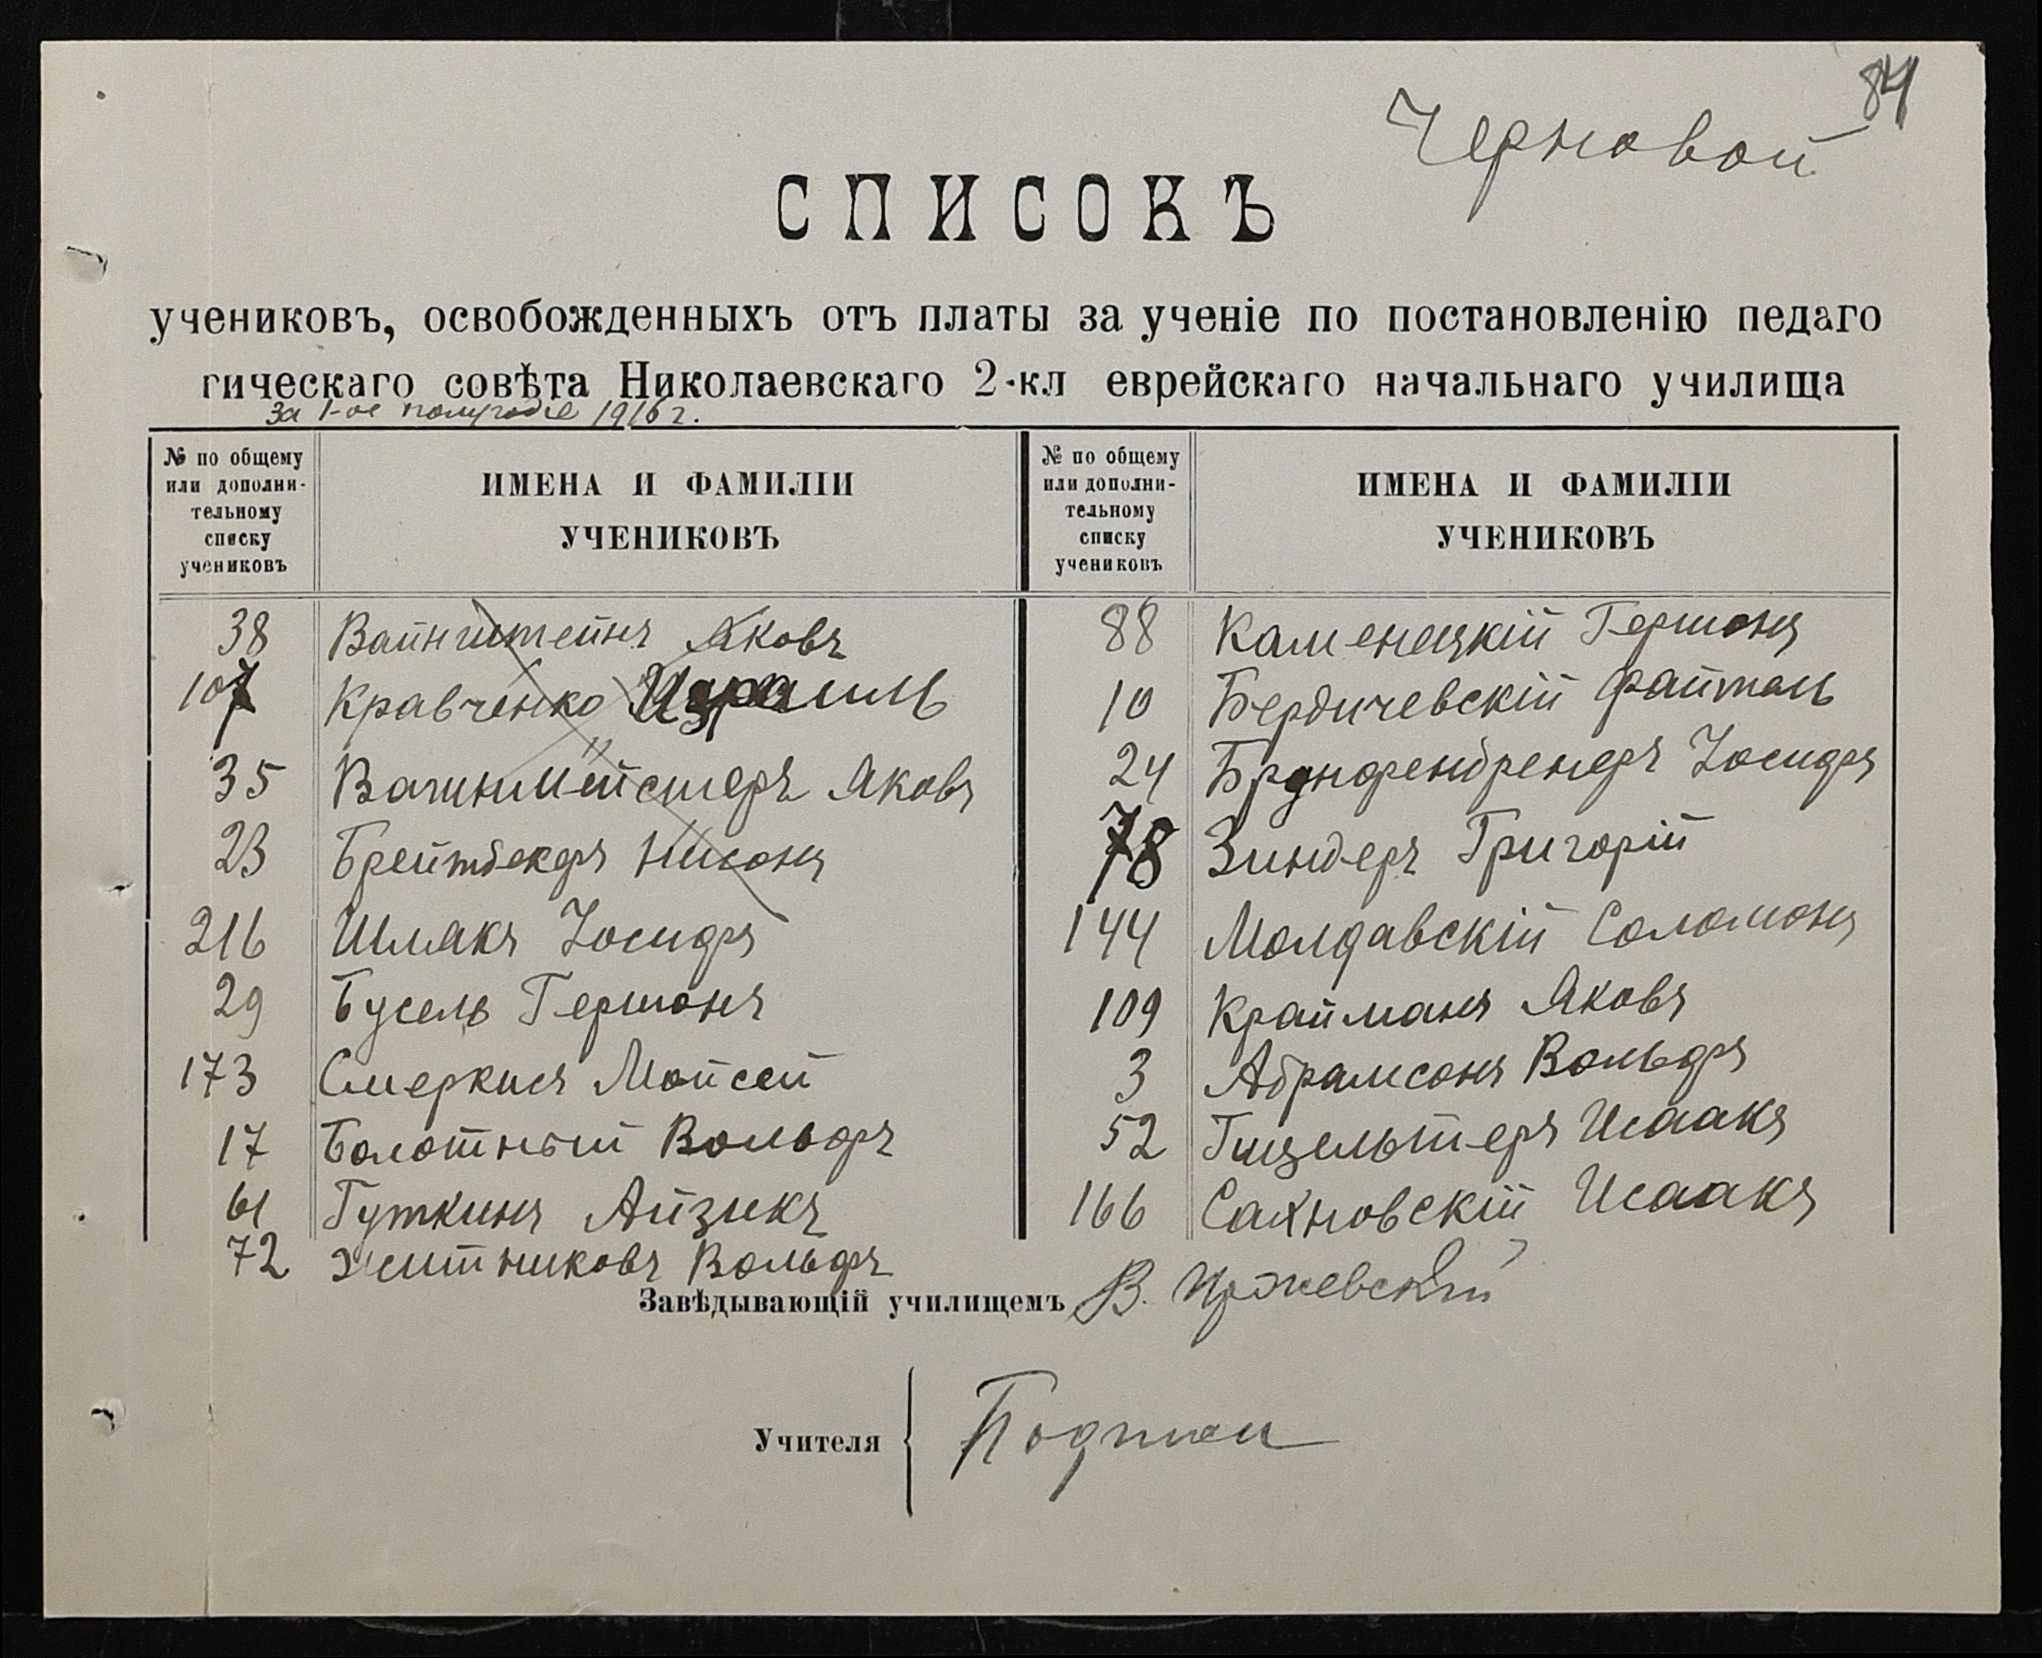 84
Черновой
СПИСОКЪ
учениковъ, освобожденныхъ отъ платы за ученіе по постановленію педаго
гическаго совѣта Николаевскаго 2-кл еврейскаго начальнаго училища
за 1-ое полугодіе 1916 г.
№ по общему
или дополни-
тельному
списку
учениковъ
ИМЕНА И ФАМИЛІИ
УЧЕНИКОВЪ
38 Вайнштейнъ Яковъ
107 Кравченко Израиль
35 Вагинмейстеръ Яковъ
23 Брейтбекеръ Нисонъ
216 Шмакъ Іосифъ
29 Бусель Гершонъ
173 Смеркисъ Мойсей
17 Болотный Вольфъ
61 Гуткинъ Айзикъ
72 Житниковъ Вольфъ
№ по общему
или дополни-
тельному
списку
учениковъ
ИМЕНА И ФАМИЛІИ
УЧЕНИКОВЪ
88 Каменецкій Гершонъ
10 Бердичевскій Файтель
24 Бронфенбренеръ Іосифъ
78 Зиндеръ Григорій
144 Молдавскій Соломонъ
109 Крайманъ Яковъ
3 Абрамсонъ Вольфъ
52 Гицельтеръ Исаакъ
166 Сахновскій Исаакъ
Завѣдывающій училищемъ В.
Учителя